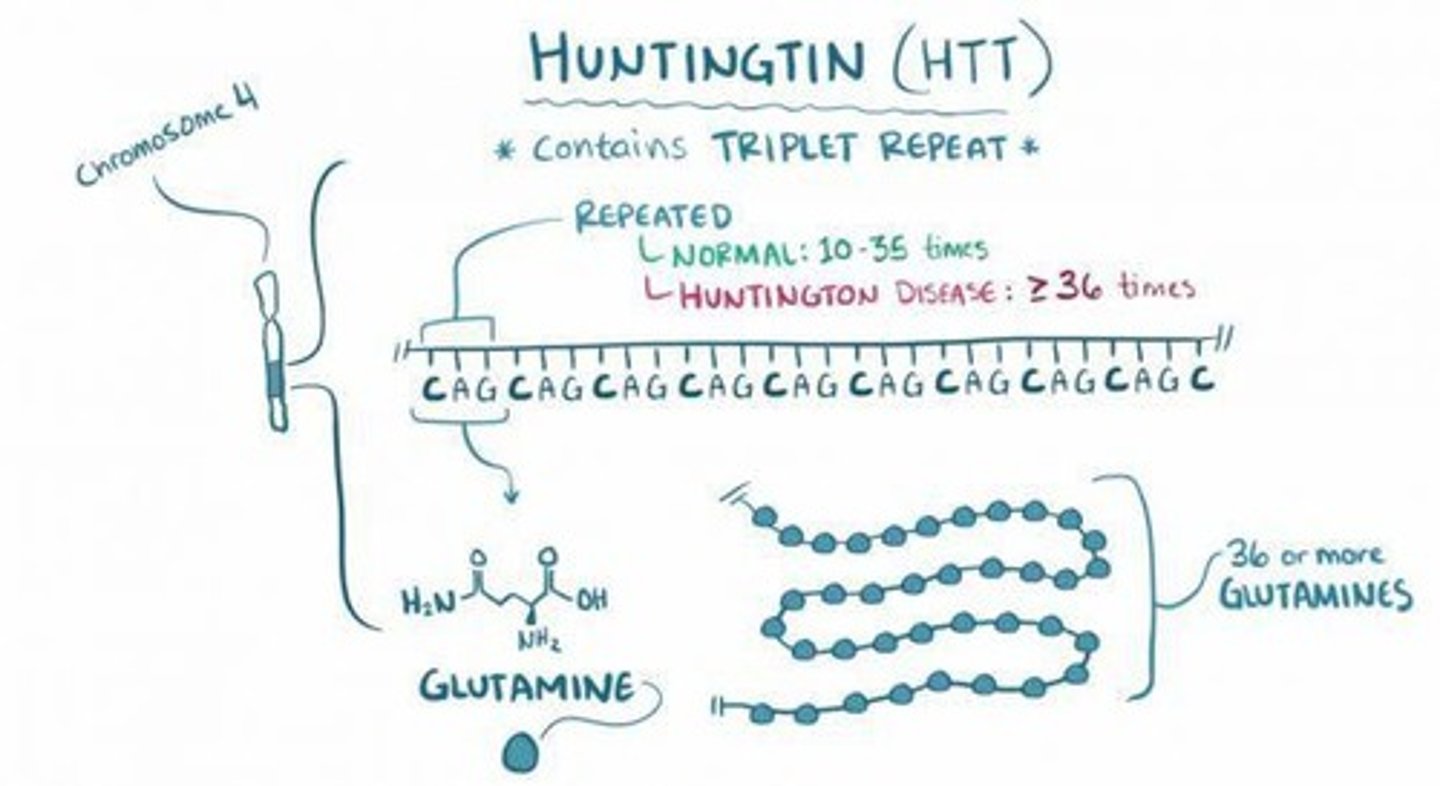 HUNTINGTIN (HTT)
* Contains TRIPLET REPEAT *
Chromosome 4
REPEATED
NORMAL: 10-35 times
HUNTINGTON DISEASE: ≥36 times
CAGCAGCAGCAGCAGCAGCAGCAGCAGC
36 or more
GLUTAMINES
O O
H₂N OH
NH₂
GLUTAMINE